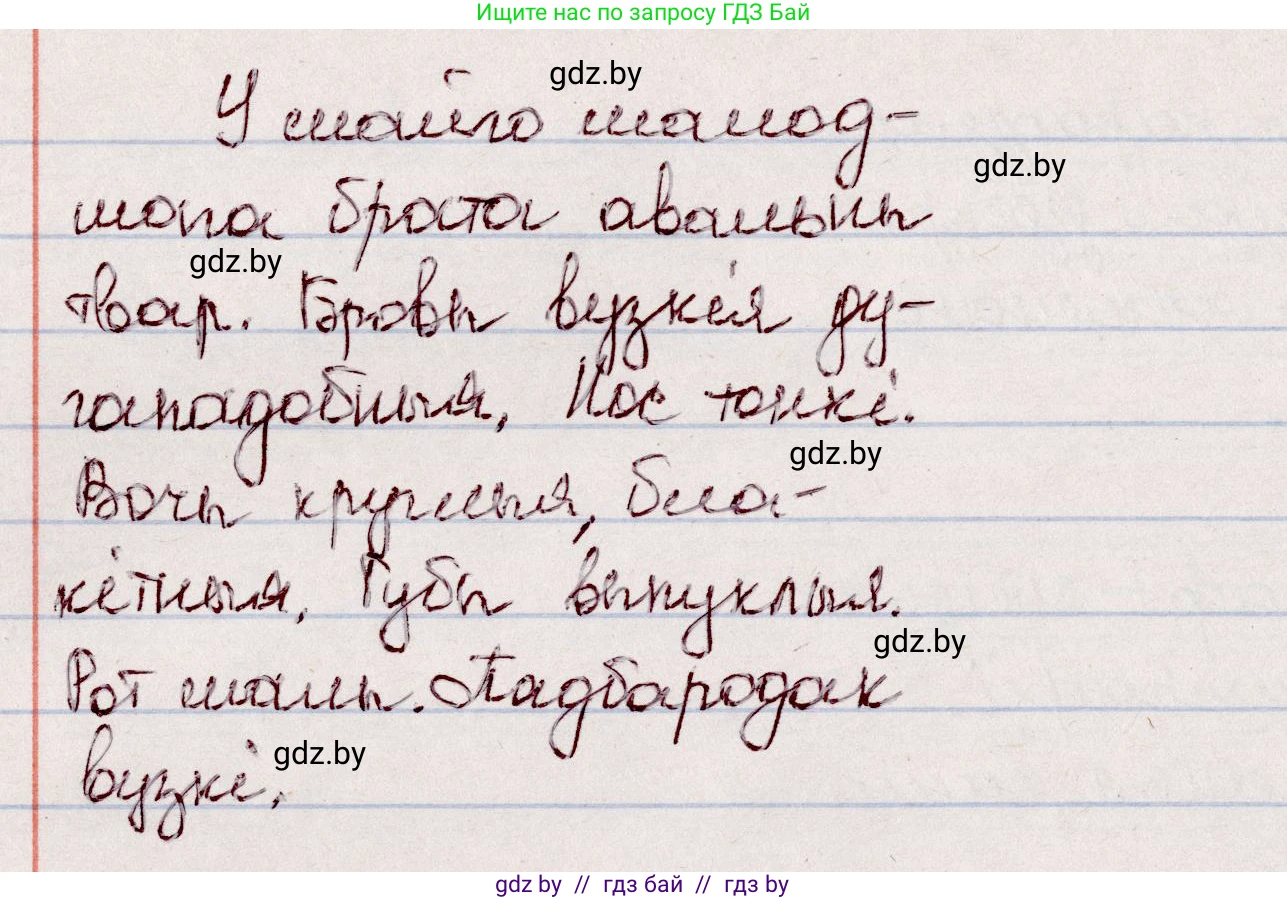 Ищите нас по запросу ГДЗ Бай
gdz.by
У майго малод-
gdz.by
шага брата авальны
gdz.by
твар. Бровы вузкія ду-
гападобныя. Нос тонкі.
gdz.by
Вочы круглыя, бла-
кітныя. Губы выпуклыя.
gdz.by
Рот малы. Падбародак
gdz.by
вузкі.
gdz by // гдз бай // гдз by